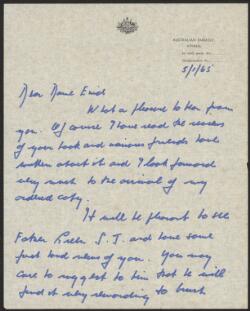 AUSTRALIAN EMBASSY,
5/1/65
Dear Dame Enid
What a pleasure to hear from
you. Of course I have read the reviews
of your book and various friends have
written about it and I look forward
very much to the arrival of my
ordered copy.
It will be pleasant to see
Father S.J. and have some
first hand news of you. You may
care to suggest to him that he will
find it very rewarding to